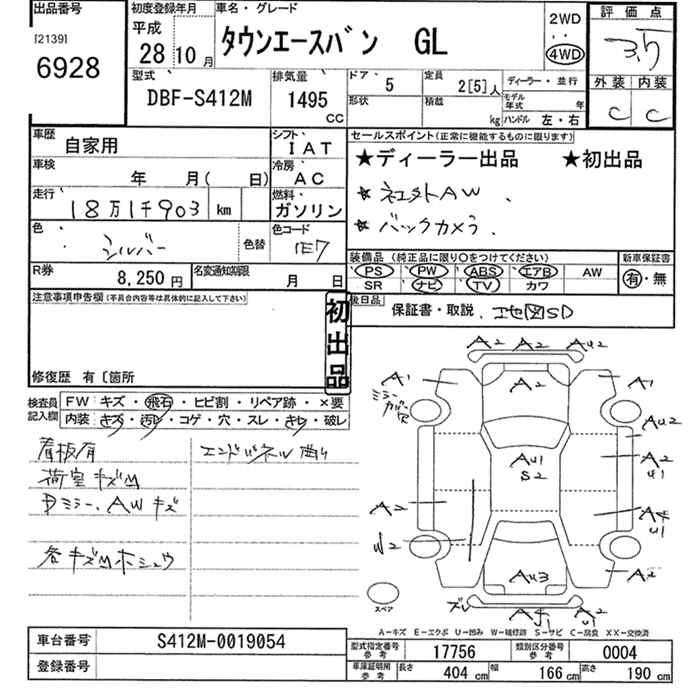 出品番号
[2139]
6928
初度登録年月
平成
28 10月
車名・グレード
タウンエースバン GL
2WD
・・
4WD
評価点
3.5
外装 内装
C C
型式
DBF-S412M
排気量
1495
CC
ドア
5
定員
2[5]人
ディーラー・並行
形状
積載
kg
モデル年式
年
ハンドル 左・右
車歴
自家用
シフト
IAT
車検
年 月( 日)
冷房
AC
走行
18万1千903 km
燃料
ガソリン
色
シルバー
色替
色コード
1E7
R券
8,250円
名変通知期限
月 日
セールスポイント(正常に機能するものに限ります)
★ディーラー出品 ★初出品
★社外AW、
★バックカメラ、
装備品(純正品に限り○をつけてください)
新車保証書
PS PW ABS エアB AW
有・無
SR ナビ TV カワ
後日品
保証書・取説、地図SD
注意事項申告欄(不具合内容等は具体的に記入して下さい)
初出品
修復歴 有〔箇所
検査員記入欄
FW キズ・飛石・ヒビ割・リペア跡・×要
内装 キズ・汚レ・コゲ・穴・スレ・キレ・破レ
看板有
荷室キズM
Dミラー、AWキズ
各キズMホシュウ
エンドパネル曲り
A2 A2 AU2
A1 A2 A1
ミラーカバーワレ
AU2
AU1
S2
A2
U1
A2
A4
U1
W2
A2
AU3
ズレ
A41
AU2
U1
スペア
A-キズ E-エクボ U-凹み W-補修跡 S-サビ C-腐食 XX-交換済
車台番号
S412M-0019054
登録番号
型式指定番号
参考
17756
類別区分番号
参考
0004
車庫証明用
参考
長さ
404 cm
幅
166 cm
高さ
190 cm